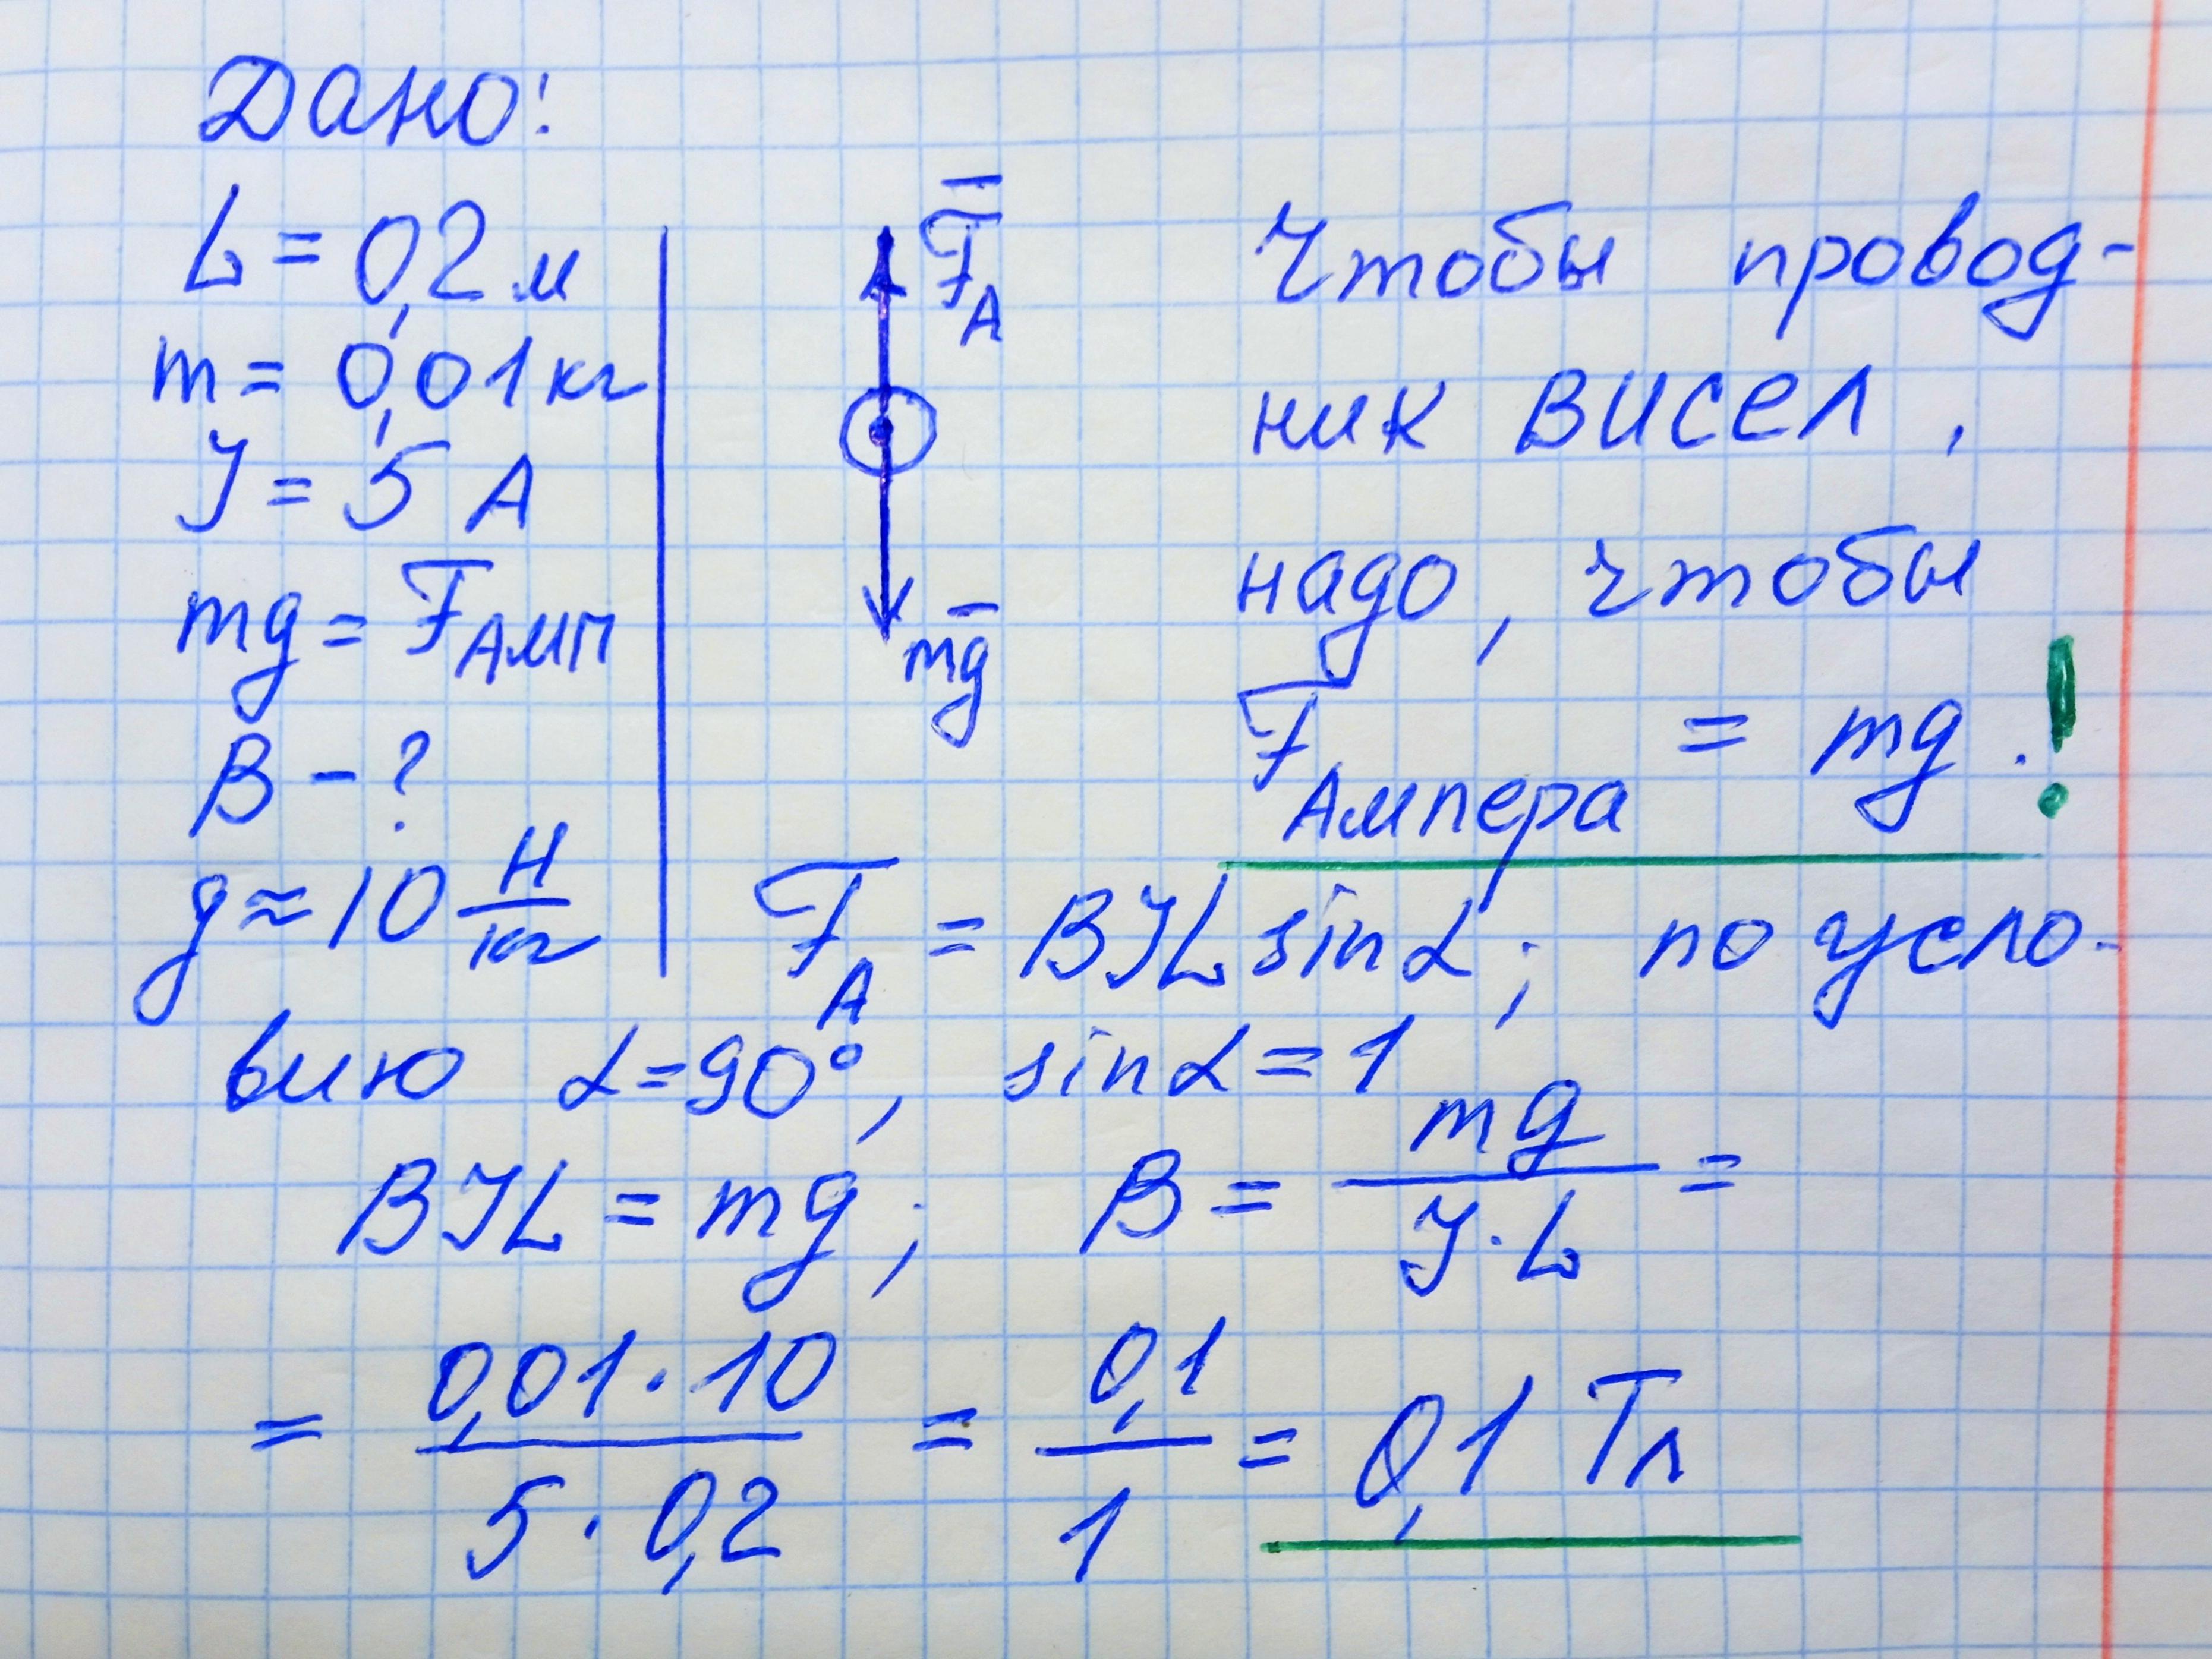 Дано:
L = 0,2 м
m = 0,01 кг
J = 5 А
mg = Fамп
B - ?
g ≈ 10 Н/кг
F̅А
m̅g̅
Чтобы провод-
ник висел,
надо, чтобы
FАмпера = mg. !
FА = BJL sin α; по усло-
вию α = 90°, sin α = 1
BJL = mg; B = mg/J·L =
= 0,01·10/5·0,2 = 0,1/1 = 0,1 Тл